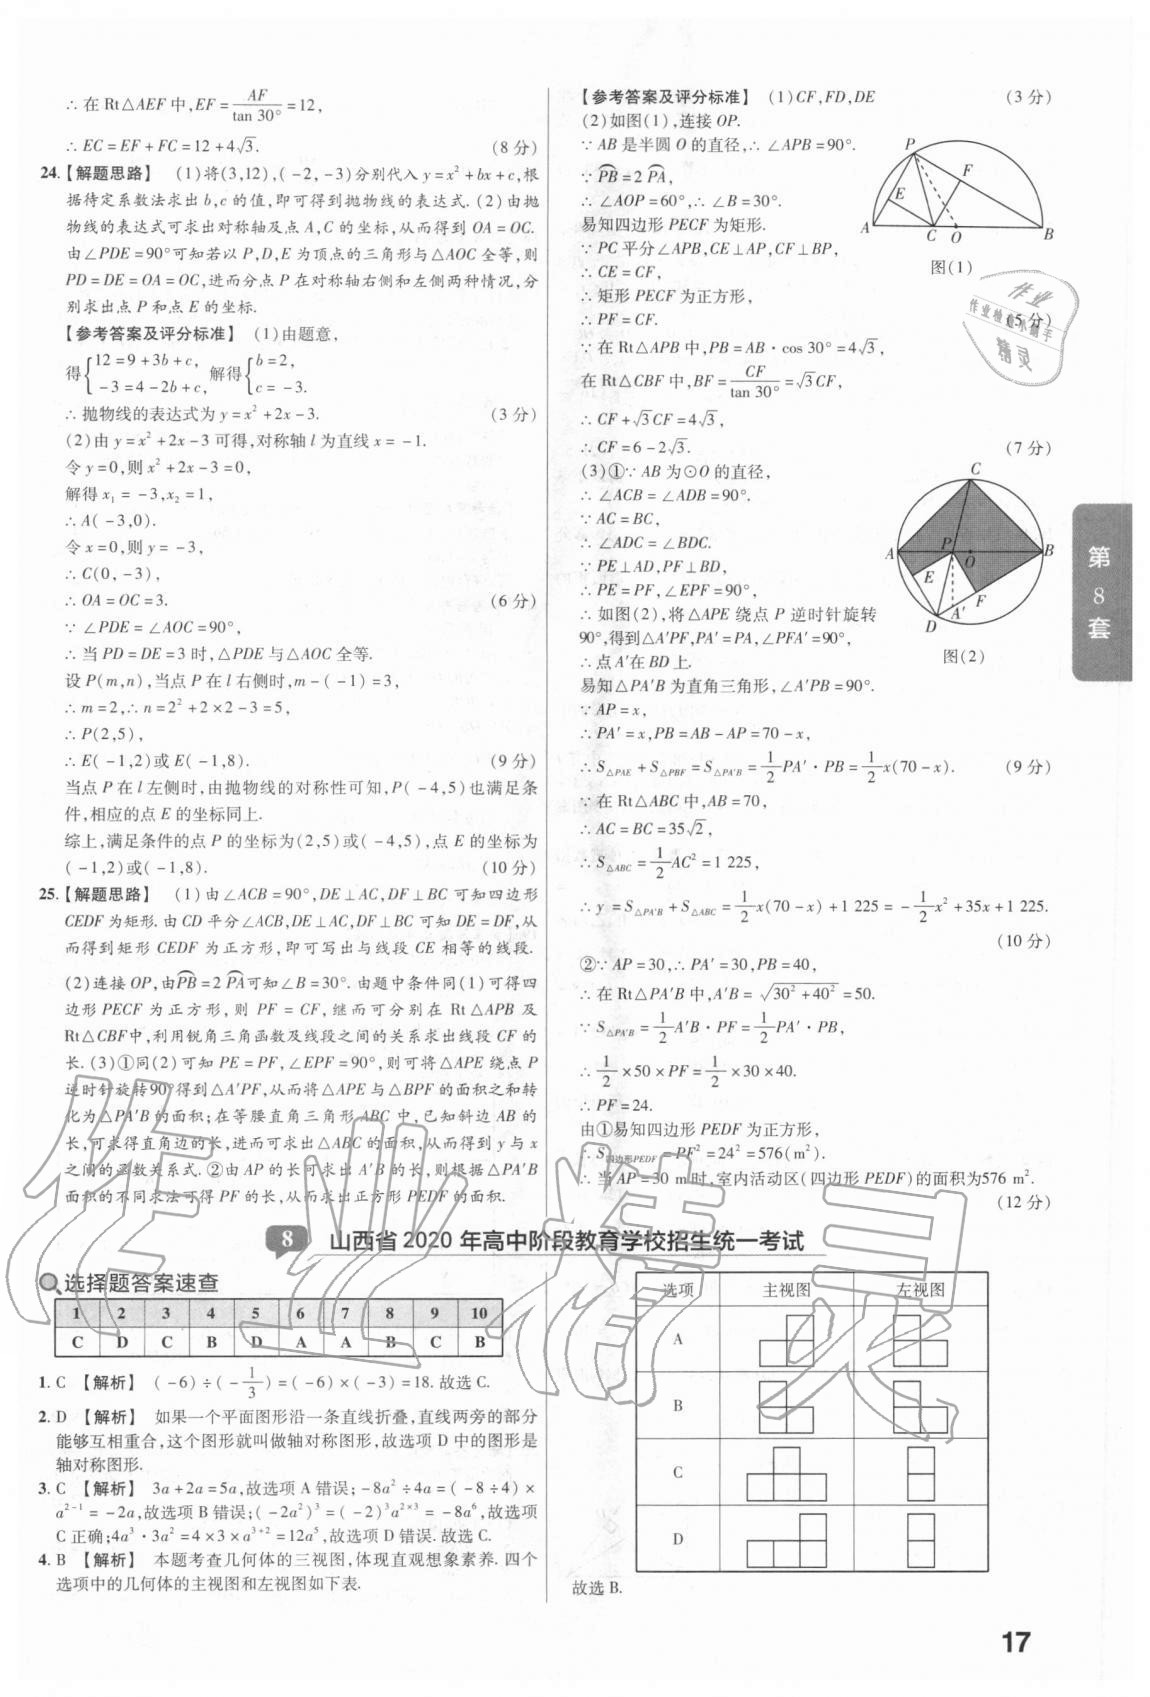 ∴在 Rt△AEF 中,EF = AF/tan 30° = 12,
∴EC = EF + FC = 12 + 4√3. (8 分)
24.【解题思路】 (1)将(3,12),( -2, -3)分别代入 y = x² + bx + c,根
据待定系数法求出 b,c 的值,即可得到抛物线的表达式. (2)由抛
物线的表达式可求出对称轴及点 A,C 的坐标,从而得到 OA = OC.
由∠PDE = 90°可知若以 P,D,E 为顶点的三角形与△AOC 全等,则
PD = DE = OA = OC,进而分点 P 在对称轴右侧和左侧两种情况,分
别求出点 P 和点 E 的坐标.
【参考答案及评分标准】 (1)由题意,
得{12 = 9 + 3b + c, -3 = 4 - 2b + c, 解得{b = 2, c = -3.
∴抛物线的表达式为 y = x² + 2x - 3. (3 分)
(2)由 y = x² + 2x - 3 可得,对称轴 l 为直线 x = -1.
令 y = 0,则 x² + 2x - 3 = 0,
解得 x₁ = -3,x₂ = 1,
∴A( -3,0).
令 x = 0,则 y = -3,
∴C(0, -3),
∴OA = OC = 3. (6 分)
∵∠PDE = ∠AOC = 90°,
∴当 PD = DE = 3 时,△PDE 与△AOC 全等.
设 P(m,n),当点 P 在 l 右侧时,m - ( -1) = 3,
∴m = 2,∴n = 2² + 2 × 2 - 3 = 5,
∴P(2,5),
∴E( -1,2)或 E( -1,8). (9 分)
当点 P 在 l 左侧时,由抛物线的对称性可知,P( -4,5)也满足条
件,相应的点 E 的坐标同上.
综上,满足条件的点 P 的坐标为(2,5)或( -4,5),点 E 的坐标为
( -1,2)或( -1,8). (10 分)
25.【解题思路】 (1)由∠ACB = 90°,DE⊥AC,DF⊥BC 可知四边形
CEDF 为矩形. 由 CD 平分∠ACB,DE⊥AC,DF⊥BC 可知 DE = DF,从
而得到矩形 CEDF 为正方形,即可写出与线段 CE 相等的线段.
(2)连接 OP,由P͡B = 2 P͡A可知∠B = 30°. 由题中条件同(1)可得四
边形 PECF 为正方形,则 PF = CF,继而可分别在 Rt△APB 及
Rt△CBF中,利用锐角三角函数及线段之间的关系求出线段 CF 的
长. (3)①同(2)可知 PE = PF,∠EPF = 90°,则可将△APE 绕点 P
逆时针旋转90°得到△A'PF,从而将△APE 与△BPF 的面积之和转
化为△PA'B 的面积;在等腰直角三角形 ABC 中,已知斜边 AB 的
长,可求得直角边的长,进而可求出△ABC 的面积,从而得到 y 与 x
之间的函数关系式. ②由 AP 的长可求出 A'B 的长,则根据△PA'B
面积的不同求法可得 PF 的长,从而求出正方形 PEDF 的面积.
【参考答案及评分标准】 (1)CF,FD,DE (3 分)
(2)如图(1),连接 OP.
∵AB 是半圆 O 的直径,∴∠APB = 90°.
∵P͡B = 2 P͡A,
∴∠AOP = 60°,∴∠B = 30°.
易知四边形 PECF 为矩形.
∵PC 平分∠APB,CE⊥AP,CF⊥BP,
∴CE = CF,
∴矩形 PECF 为正方形,
∴PF = CF. (5 分)
∵在 Rt△APB 中,PB = AB · cos 30° = 4√3,
在 Rt△CBF 中,BF = CF/tan 30° = √3CF,
∴CF + √3CF = 4√3,
∴CF = 6 - 2√3. (7 分)
P
F
E
A
C
O
B
图(1)
(3)①∵AB 为⊙O 的直径,
∴∠ACB = ∠ADB = 90°.
∵AC = BC,
∴∠ADC = ∠BDC.
∵PE⊥AD,PF⊥BD,
∴PE = PF,∠EPF = 90°,
∴如图(2),将△APE 绕点 P 逆时针旋转
90°,得到△A'PF,PA' = PA,∠PFA' = 90°,
∴点 A'在 BD 上.
易知△PA'B 为直角三角形,∠A'PB = 90°.
∵AP = x,
∴PA' = x,PB = AB - AP = 70 - x,
∴S△PAE + S△PBF = S△PA'B = 1/2 PA' · PB = 1/2 x(70 - x). (9 分)
∵在 Rt△ABC 中,AB = 70,
∴AC = BC = 35√2,
∴S△ABC = 1/2 AC² = 1 225,
∴y = S△PA'B + S△ABC = 1/2 x(70 - x) + 1 225 = - 1/2 x² + 35x + 1 225.
(10 分)
②∵AP = 30,∴PA' = 30,PB = 40,
∴在 Rt△PA'B 中,A'B = √(30² + 40²) = 50.
∵S△PA'B = 1/2 A'B · PF = 1/2 PA' · PB,
∴1/2 × 50 × PF = 1/2 × 30 × 40.
∴PF = 24.
由①易知四边形 PEDF 为正方形,
∴S四边形PEDF = PF² = 24² = 576(m²).
∴当 AP = 30 m 时,室内活动区(四边形 PEDF)的面积为576 m².
(12 分)
C
A
P
O
B
E
F
D
A'
图(2)
作业
作业检查小助手
精灵
第8套
8 山西省 2020 年高中阶段教育学校招生统一考试
选择题答案速查
1 2 3 4 5 6 7 8 9 10
C D C B D A A B C B
1. C 【解析】 ( -6) ÷ ( - 1/3 ) = ( -6) × ( -3) = 18. 故选 C.
2. D 【解析】 如果一个平面图形沿一条直线折叠,直线两旁的部分
能够互相重合,这个图形就叫做轴对称图形,故选项 D 中的图形是
轴对称图形.
3. C 【解析】 3a + 2a = 5a,故选项 A 错误; -8a² ÷ 4a = ( -8 ÷ 4) ×
a²⁻¹ = -2a,故选项 B 错误;( -2a²)³ = ( -2)³a²ˣ³ = -8a⁶,故选项
C 正确;4a³ · 3a² = 4 × 3 × a³⁺² = 12a⁵,故选项 D 错误. 故选 C.
4. B 【解析】 本题考查几何体的三视图,体现直观想象素养. 四个
选项中的几何体的主视图和左视图如下表.
选项 主视图 左视图
A
B
C
D
故选 B.
作业精灵
17